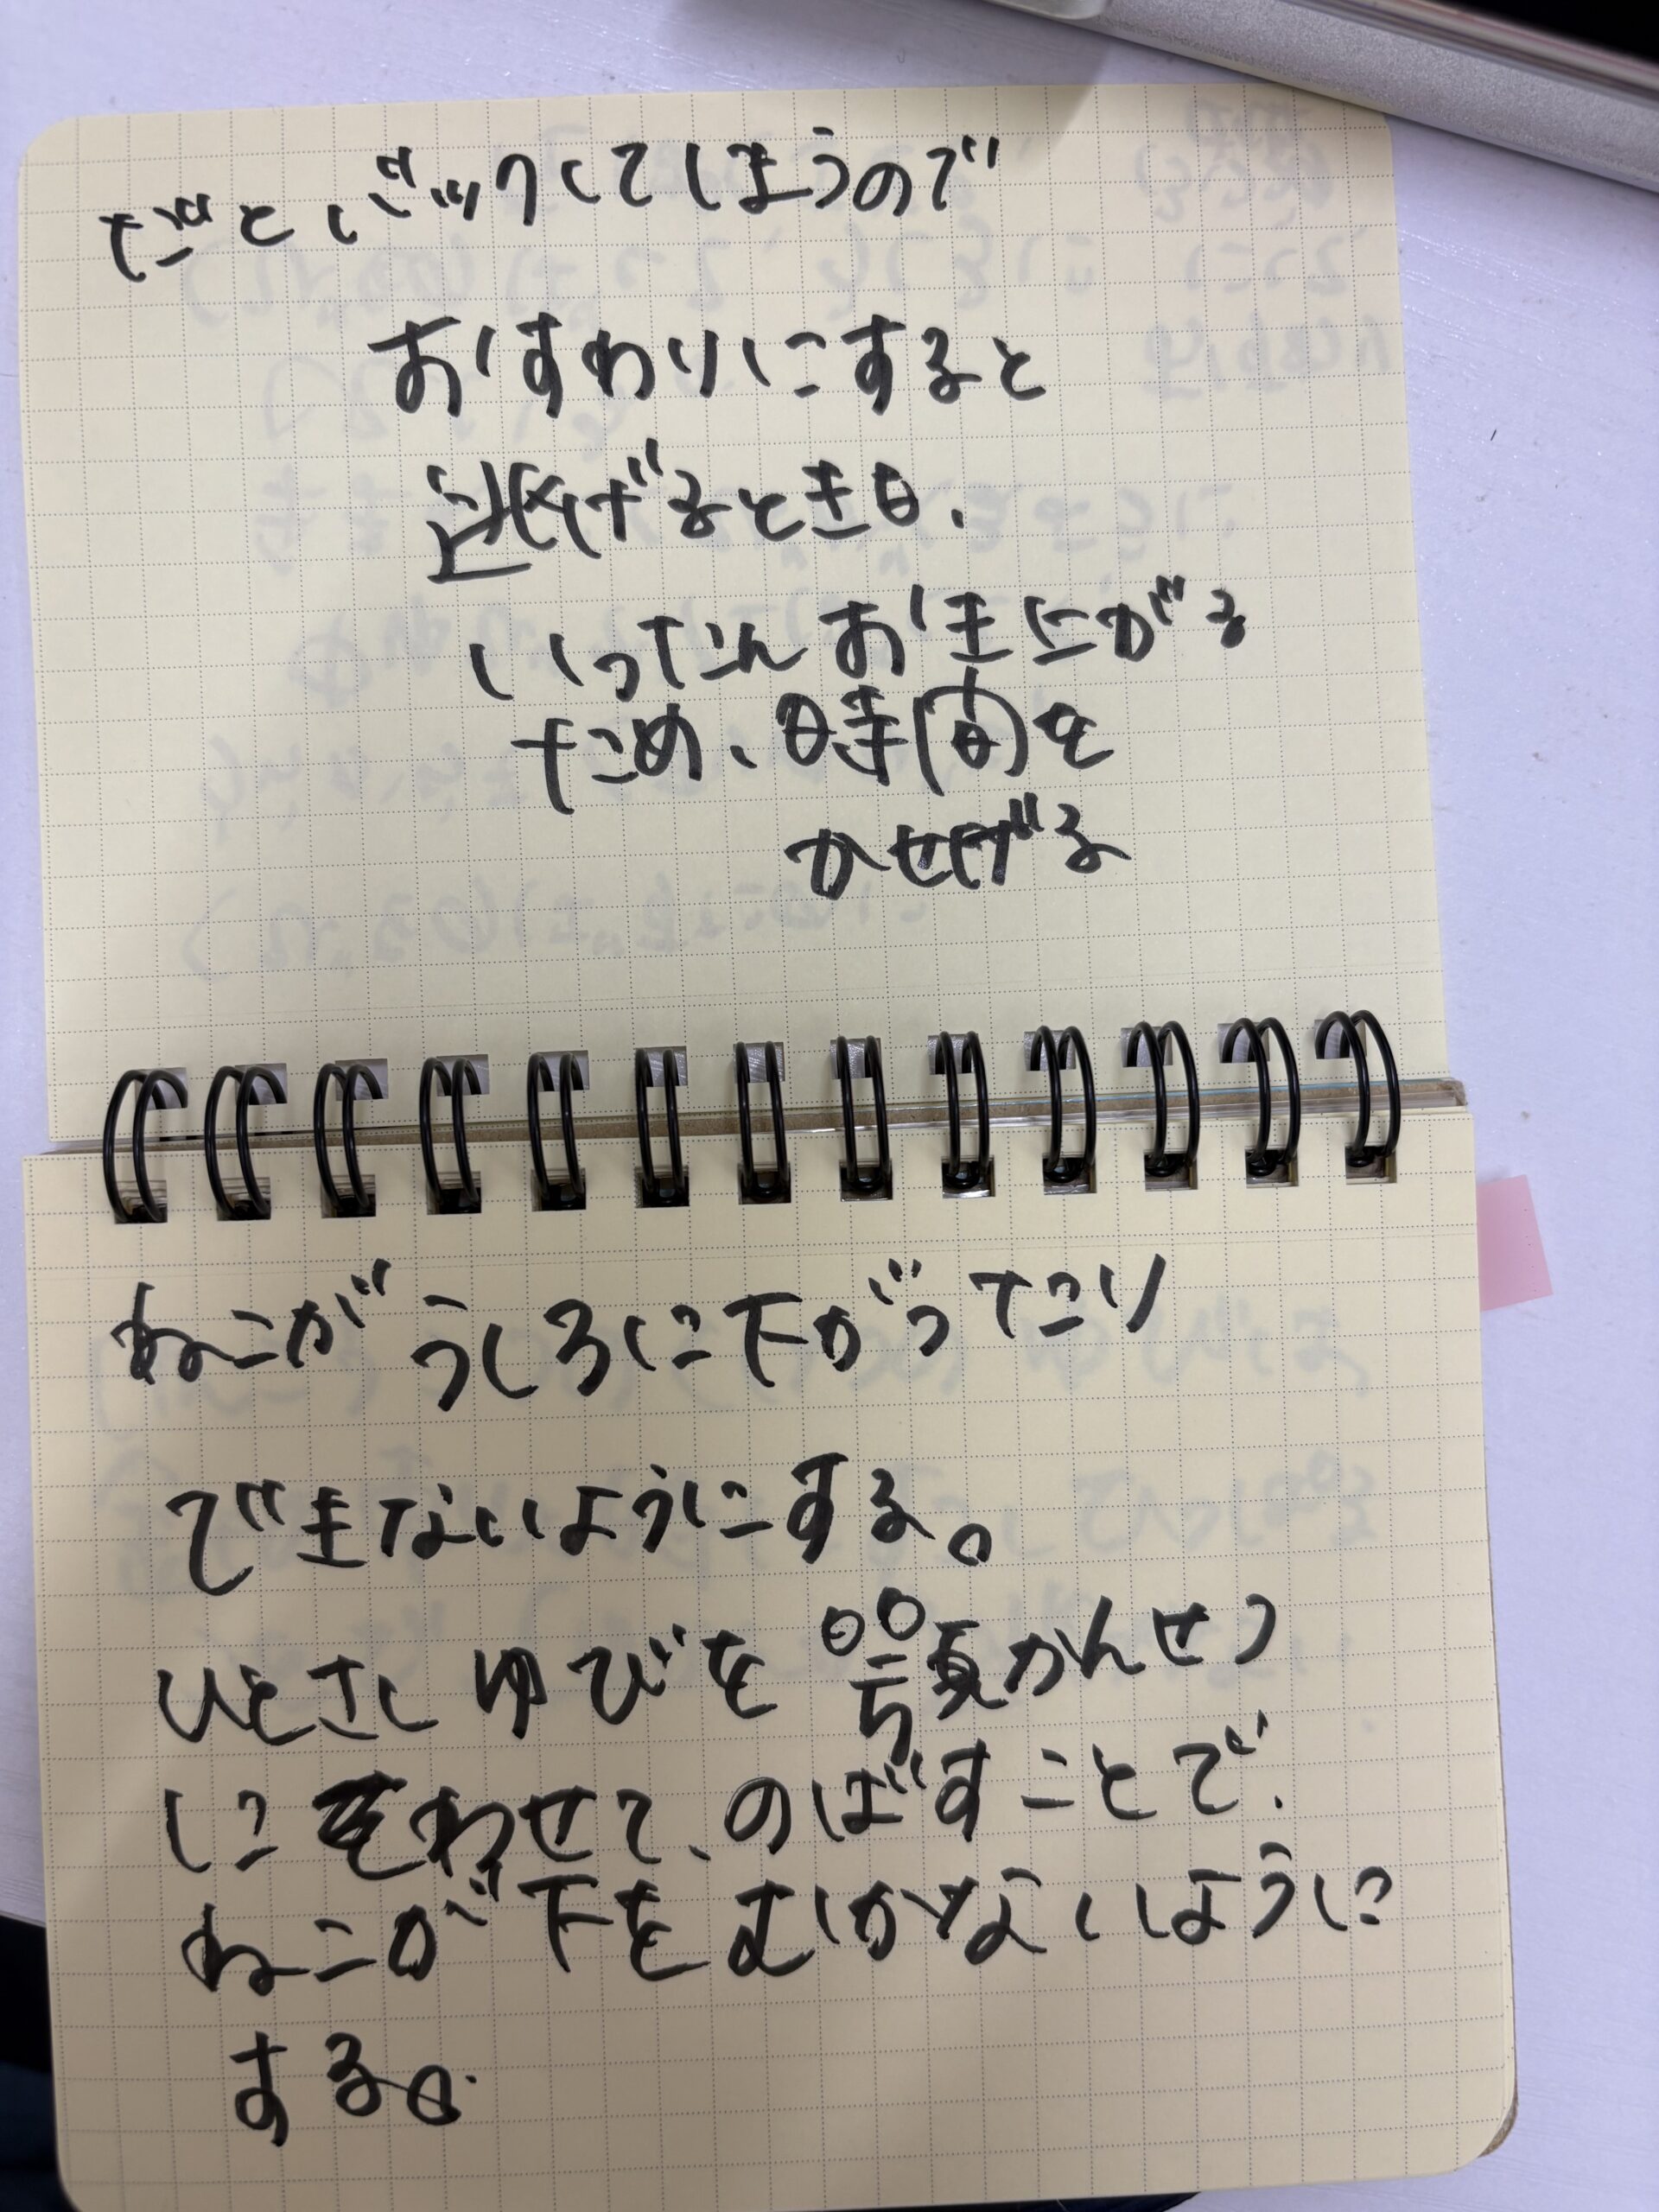 だとバックしてしまうので
おすわりにすると
逃げるとき日、
いったんおきにがる
ため、時間を
かせげる
ねこがうしろに下がったり
できないようにする。
ひとさしゆびを顎かんせつ
にをわせて、のばすことで、
ねこが下をむかないように
する。